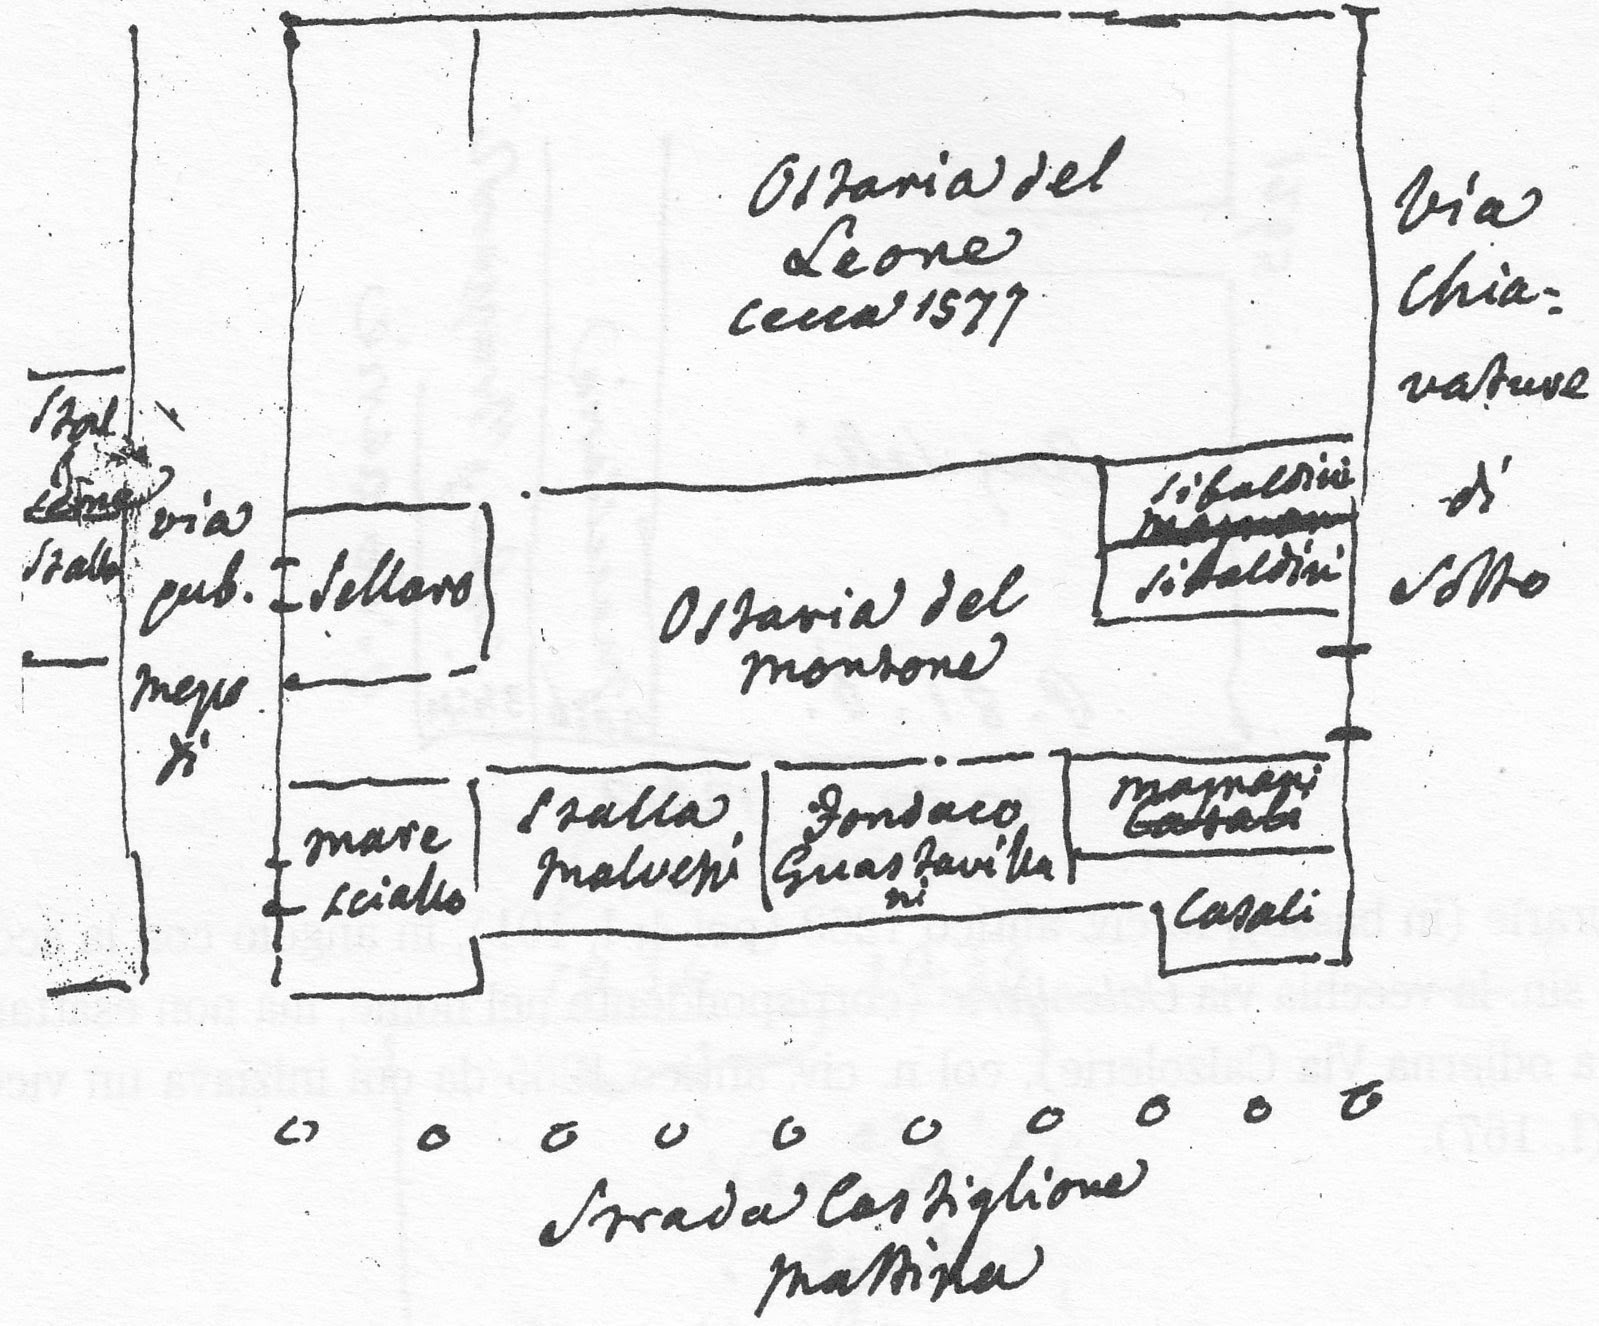 Ostaria del
Leone
cecca 1577
Via
Chia-
vature
di
Sotto
Stal
Stalla
via
pub.
mezo
di
Sellaro
Ostaria del
montone
Sibaldini
Sibaldini
mare
sciallo
Stalla
Malvezzi
Fondaco
Guastavilla
ni
magnani
Casali
Casali
Strada Castiglione
mattina